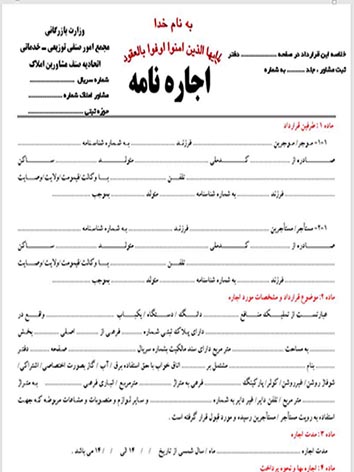 به نام خدا
یاایها الذین امنوا اوفوا بالعقود
اجاره نامه
وزارت بازرگانی
مجمع امور صنفی توزیعی ـ خدماتی
اتحادیه صنف مشاورین املاک
شماره سریال ................
مشاور املاک شماره ................
حوزه ثبتی ................
خلاصه این قرارداد در صفحه ................ دفتر
ثبت مشاور ، جلد ........ به شماره ................
ماده ۱ : طرفین قرارداد
۱-۱- موجر/ موجرین ................ فرزند ................ به شماره شناسنامه ................
صادره از ................ کدملی ................ متولد ................ ساکن
................ تلفن ................ با وکالت/قیومت/ولایت/وصایت
................ فرزند ................ به شماره شناسنامه ................ متولد ................ بموجب ................
۲-۱- مستأجر/ مستأجرین ................ فرزند ................ به شماره شناسنامه ................
صادره از ................ کدملی ................ متولد ................ ساکن
................ تلفن ................ با وکالت/قیومت/ولایت/وصایت
................ فرزند ................ به شماره شناسنامه ................ متولد ................ بموجب ................
ماده ۲: موضوع قرارداد و مشخصات مورد اجاره
عبارتست از تملیک منافع ................ دانگ / دستگاه / یکباب ................ واقع در
................ دارای پلاک ثبتی شماره ................ فرعی از ................ اصلی ................ بخش
................ به مساحت ................ متر مربع دارای سند مالکیت بشماره سریال ................ صفحه ................ دفتر
................ بنام ................ مشتمل بر ................ اتاق خواب با حق استفاده برق / آب / گاز بصورت اختصاصی / اشتراکی/
شوفاژ روشن /غیرروشن / کولر/ پارکینگ ................ فرعی به متراژ ................ مترمربع / انباری فرعی ................ به متراژ
................ متر مربع / تلفن دایر/ غیر دایر به شماره ................ و سایر لوازم و منصوبات و مشاعات مربوطه که جهت
استفاده به رویت مستأجر/ مستأجرین رسیده و مورد قبول قرار گرفته است .
ماده ۳ : مدت اجاره
مدت اجاره ................ ماه / سال شمسی از تاریخ / / ۱۴ الی / / ۱۴ می باشد .
ماده ۴ : اجاره بها و نحوه پرداخت